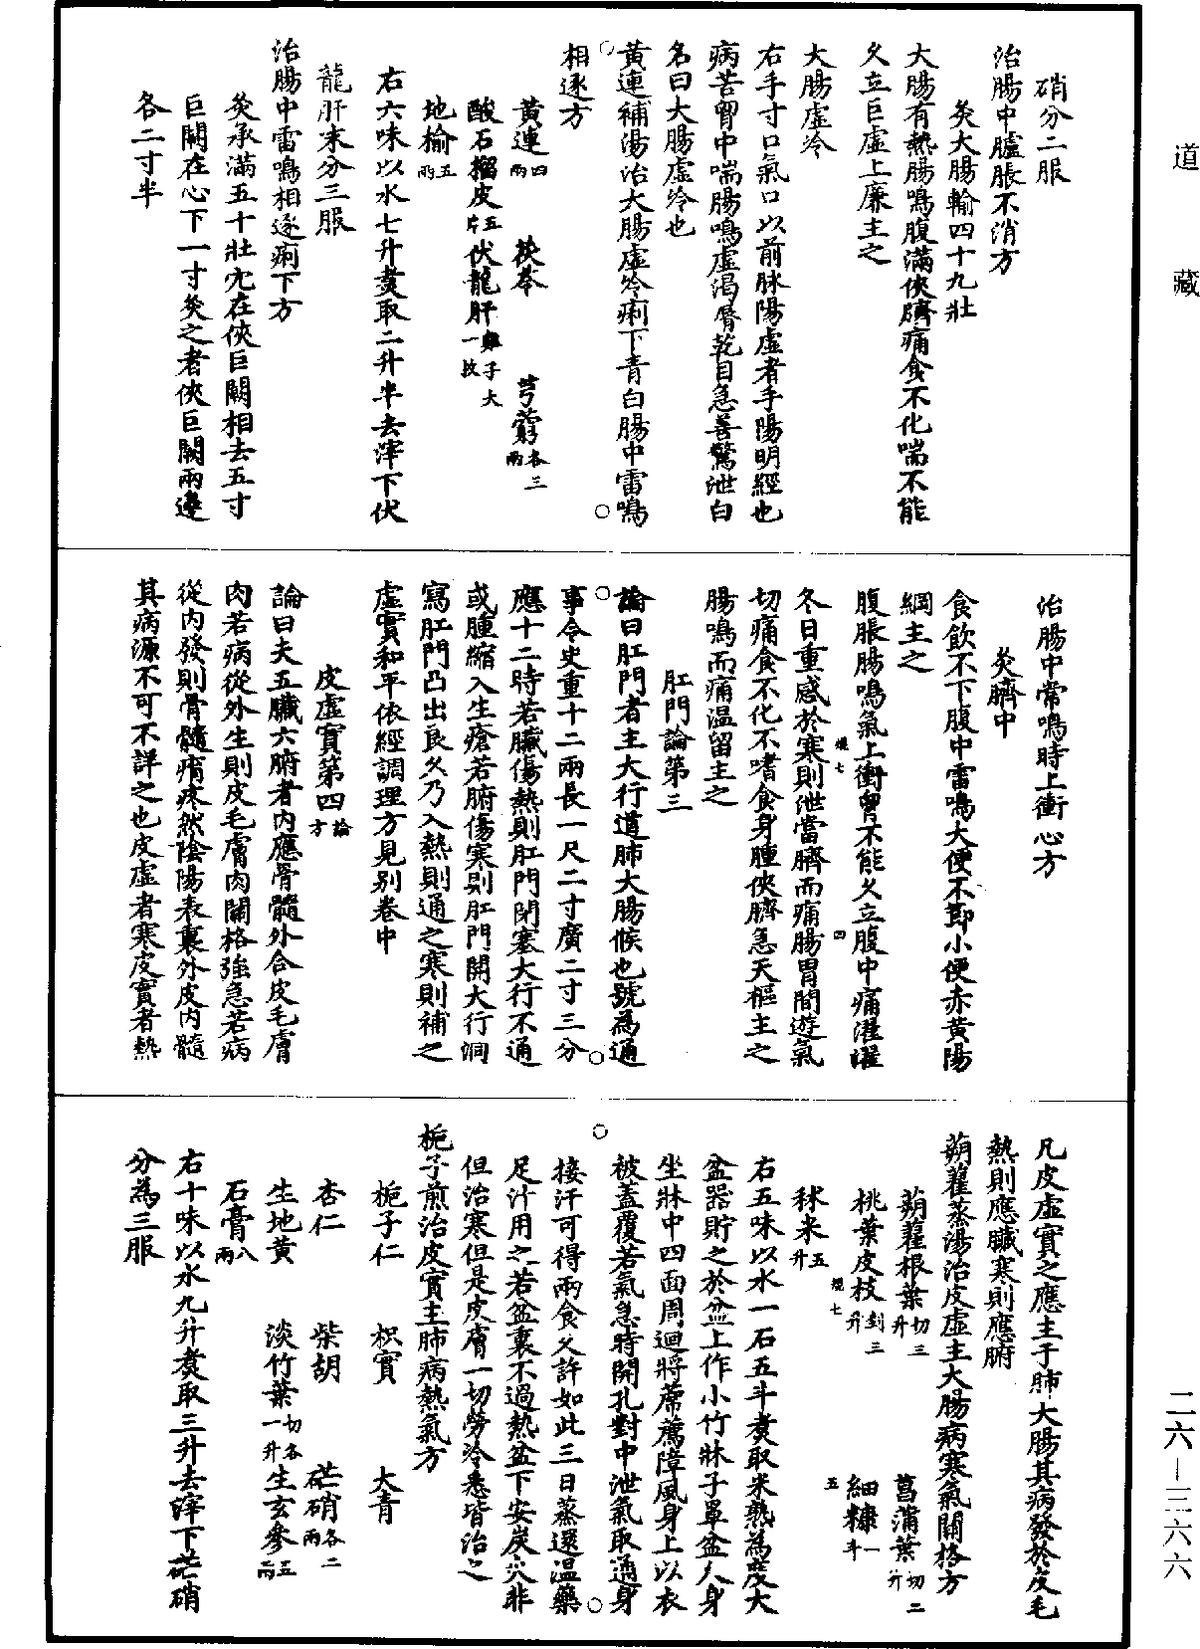 道藏
硝分二服
治腸中臚脹不消方
灸大腸輸四十九壯
大腸有熱腸鳴腹滿俠臍痛食不化喘不能
久立巨虛上廉主之
大腸虛冷
右手寸口氣口以前脉陽虛者手陽明經也
病苦胷中喘腸鳴虛渴脣乾目急善驚泄白
名曰大腸虛冷也
黃連補湯治大腸虛冷痢下青白腸中雷鳴
相逐方
黃連四兩 茯苓 芎藭各三兩
酸石榴皮五片 伏龍肝雞子大一枚
地榆五兩
右六味以水七升煑取二升半去滓下伏
龍肝末分三服
治腸中雷鳴相逐痢下方
灸承滿五十壯穴在俠巨闕相去五寸
巨闕在心下一寸灸之者俠巨闕兩邊
各二寸半
治腸中常鳴時上衝心方
灸臍中
食飲不下腹中雷鳴大便不節小便赤黃陽
綱主之
腹脹腸鳴氣上衝胷不能久立腹中痛濯濯
冬日重感於寒則泄當臍而痛腸胃間遊氣
切痛食不化不嗜食身腫俠臍急天樞主之
腸鳴而痛溫留主之
肛門論第三
論曰肛門者主大行道肺大腸候也號為通
事令史重十二兩長一尺二寸廣二寸三分
應十二時若臟傷熱則肛門閉塞大行不通
或腫縮入生瘡若腑傷寒則肛門開大行洞
寫肛門凸出良久乃入熱則通之寒則補之
虛實和平依經調理方見別卷中
皮虛實第四論方
論曰夫五臟六腑者內應骨髓外合皮毛膚
肉若病從外生則皮毛膚肉關格強急若病
從內發則骨髓痟疼然陰陽表裏外皮內髓
其病源不可不詳之也皮虛者寒皮實者熱
凡皮虛實之應主于肺大腸其病發於皮毛
熱則應臟寒則應腑
蒴藋蒸湯治皮虛主大腸病寒氣關格方
蒴藋根葉切三升 菖蒲葉切二升
桃葉皮枝剉三升 細糠一斗
秫米五升
右五味以水一石五斗煑取米熟為度大
盆器貯之於盆上作小竹牀子罩盆人身
坐牀中四面周迴將席薦障風身上以衣
被蓋覆若氣急時開孔對中泄氣取通身
接汗可得兩食久許如此三日蒸還溫藥
足汁用之若盆裏不過熱盆下安炭火非
但治寒但是皮膚一切勞冷悉皆治之
梔子煎治皮實主肺病熱氣方
梔子仁 枳實 大青
杏仁 柴胡 芒硝各二兩
生地黃 淡竹葉切各一升 生玄參五兩
石膏八兩
右十味以水九升煑取三升去滓下芒硝
分為三服
二六—三六六